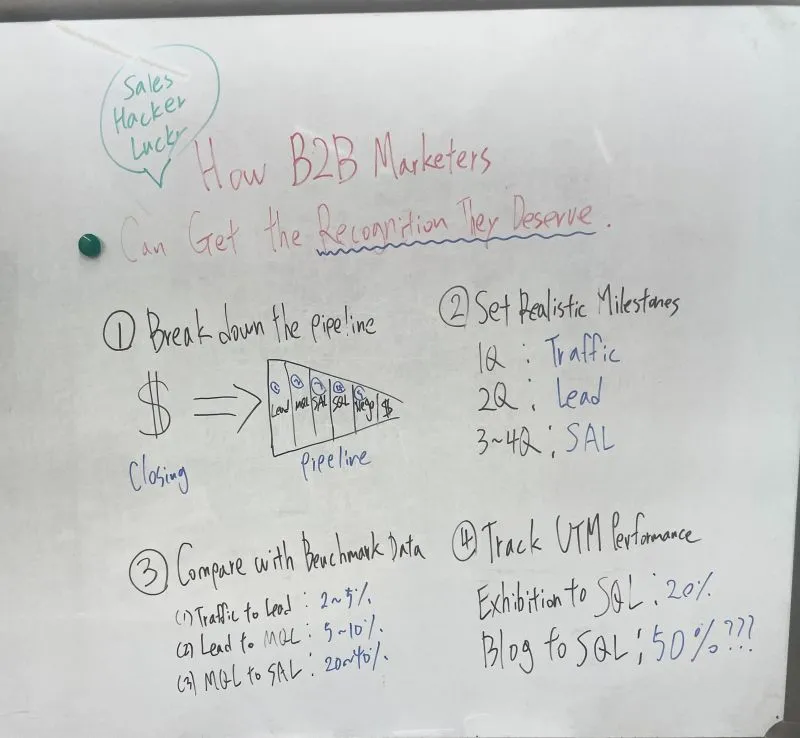 Sales
Hacker
Lucky
How B2B Marketers
Can Get the Recognition They Deserve.
① Break down the pipeline
$
Closing
① Lead
② MQL
③ SAL
④ SQL
⑤ Nego
$
Pipeline
② Set Realistic Milestones
1Q : Traffic
2Q : Lead
3~4Q : SAL
③ Compare with Benchmark Data
(1) Traffic to Lead : 2~5%
(2) Lead to MQL : 5~10%
(3) MQL to SAL : 20~40%
④ Track UTM Performance
Exhibition to SQL : 20%
Blog to SQL : 50%???